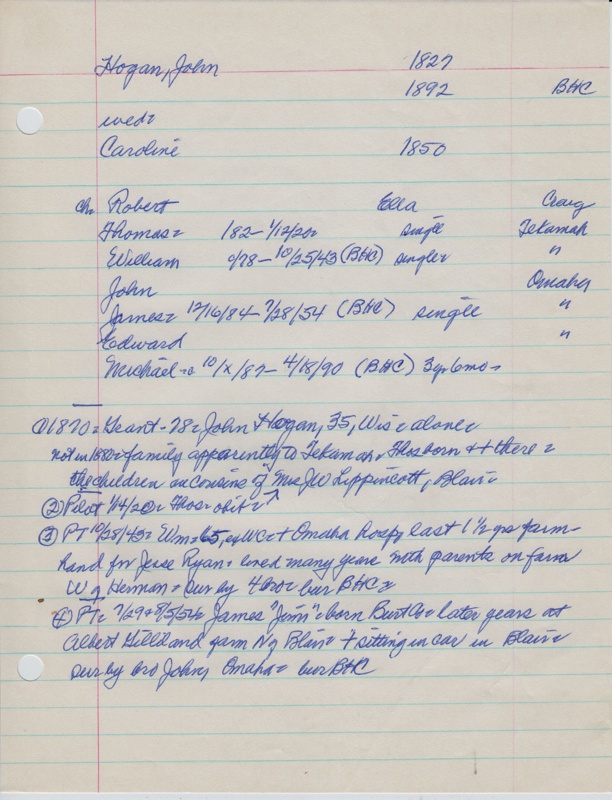 Hogan, John 1827
1892 BHC
wed=
Caroline 1850
ch. Robert Ella Craig
Thomas= 182- 1/12/20= single Tekamah
William 0/78- 10/25/43 (BHC) single= "
John Omaha
James= 12/16/84- 7/28/54 (BHC) single "
Edward "
Michael= 10/x/87- 4/18/90 (BHC) 3yr 6mo=
① 1870= Grant- 28= John Hogan, 35, Wis= alone=
not in 1880= family apparently to Tekamah, Thos born + there=
the children cousins of Mrs JW Lippincott, Blair=
② Pilot 1/14/20= Thos= obit=
③ PT 10/28/43= Wm= 65, WC + Omaha hosp, last 1 1/2 yrs farm-
hand for Jesse Ryan= lived many years with parents on farm
W of Herman= sur by 4 bro= bur BHC=
④ PT= 7/29+8/5/54= James "Jim"= born Burt Co= later years at
Albert farm N of Blair= + sitting in car in Blair=
sur by bro John, Omaha= bur BHC